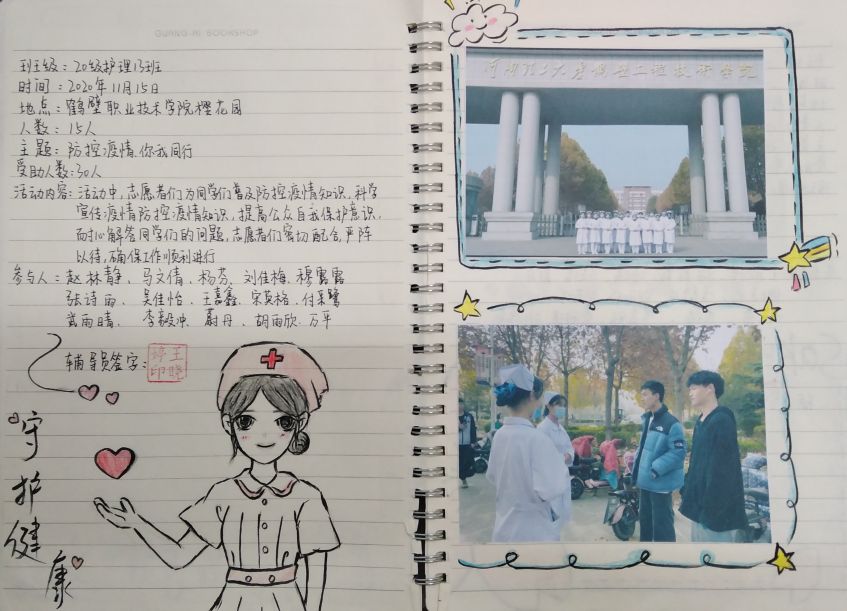 GUANG-AI BOOKSHOP
班级：20级护理13班
时间：2020年11月15日
地点：鹤壁职业技术学院樱花园
人数：15人
主题：防控疫情、你我同行
受助人数：30人
活动内容：活动中，志愿者们为同学们普及防控疫情知识，科学
宣传疫情防控疫情知识，提高公众自我保护意识，
耐心解答同学们的问题，志愿者们密切配合，严阵
以待，确保工作顺利进行
参与人：赵林静、马文倩、杨芬、刘佳梅、穆露露
张诗雨、吴佳怡、王嘉鑫、宋英格、付采鹭
武雨晴、李毅冲、蔚丹、胡雨欣、万平
辅导员签字：
王晓婷印
守护健康
河南理工大学鹤壁工程技术学院